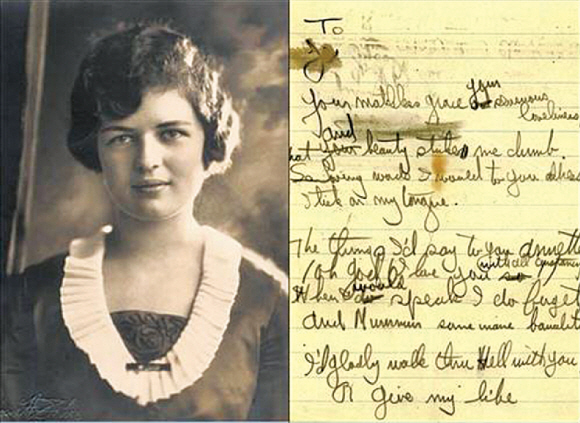 To
your
Your matchless grace sensuous
loveliness
and
your beauty strikes me dumb.
So loving words I would to you
Stick on my tongue.
The things I'd say to you Annette
with all
(oh god I love you so
would
When I speak I do forget
and Murmur some mare
I'd gladly walk thru Hell with you
Or give my life